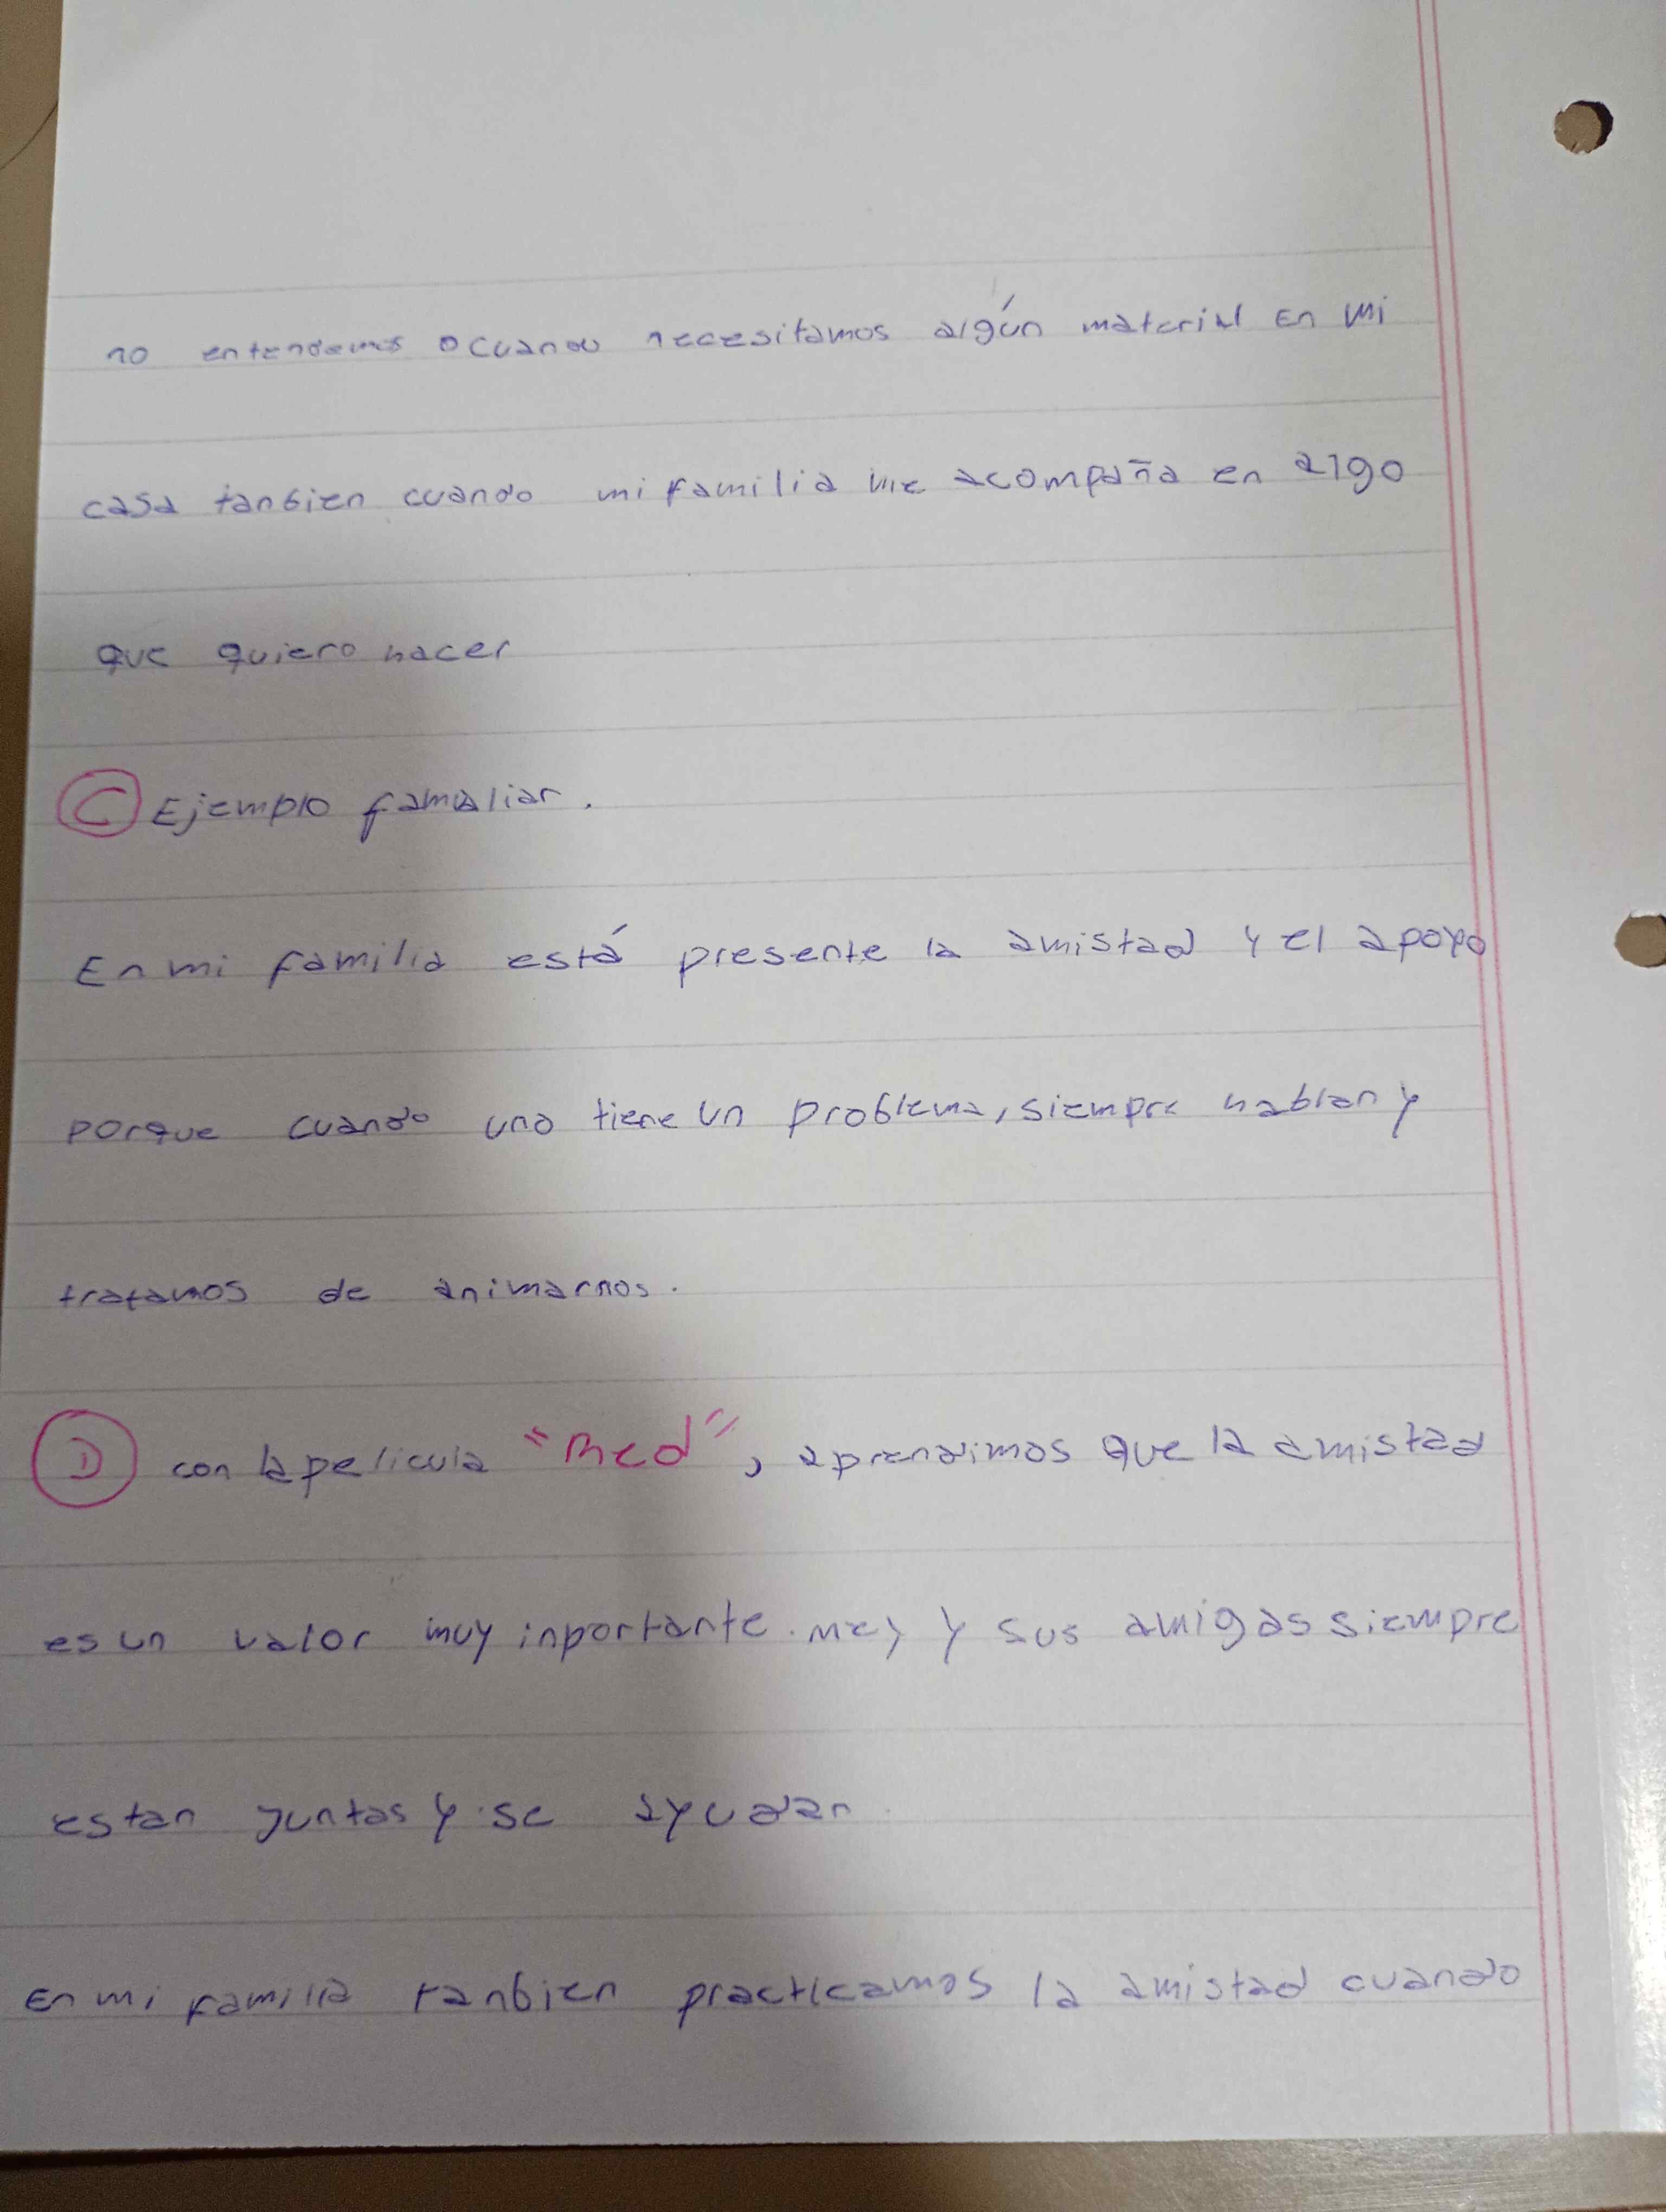 no entendemos o cuando necesitamos algún material En mi
casa tanbien cuando mi familia me acompaña en algo
que quiero hacer
C Ejemplo familiar.
En mi familia está presente la amistad y el apoyo
porque cuando uno tiene un problema, siempre hablan y
tratamos de animarnos.
D con la pelicula "Red", aprendimos que la amistad
es un valor muy inportante. Mey y sus amigas siempre
estan juntas y se ayudan
En mi familia tanbien practicamos la amistad cuando